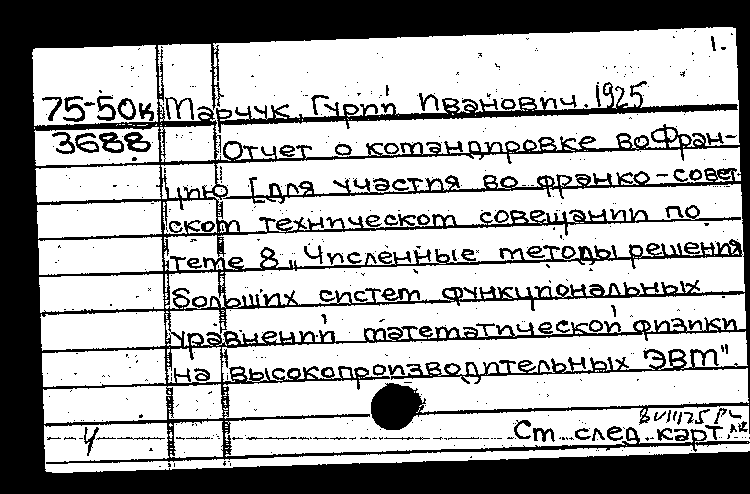 1.
75-50к Марчук, Гурий Иванович. 1925
3688 Отчет о командировке во Фран-
цию [для участия во франко-совет-
ском техническом совещании по
теме 8 „Численные методы решения
больших систем функциональных
уравнений математической физики
на высокопроизводительных ЭВМ".
Ч См след. карт.